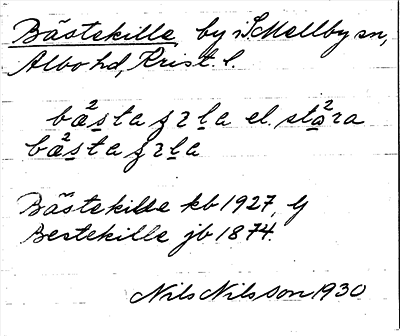 Bästekille by i S Mellby sn,
Albo hd, Krist. l.
bæ²sta ɟɪla el. sto²ra
bæ²sta ɟɪla
Bästekille kb 1927, Gj
Bestekille jb 1874.
Nils Nilsson 1930